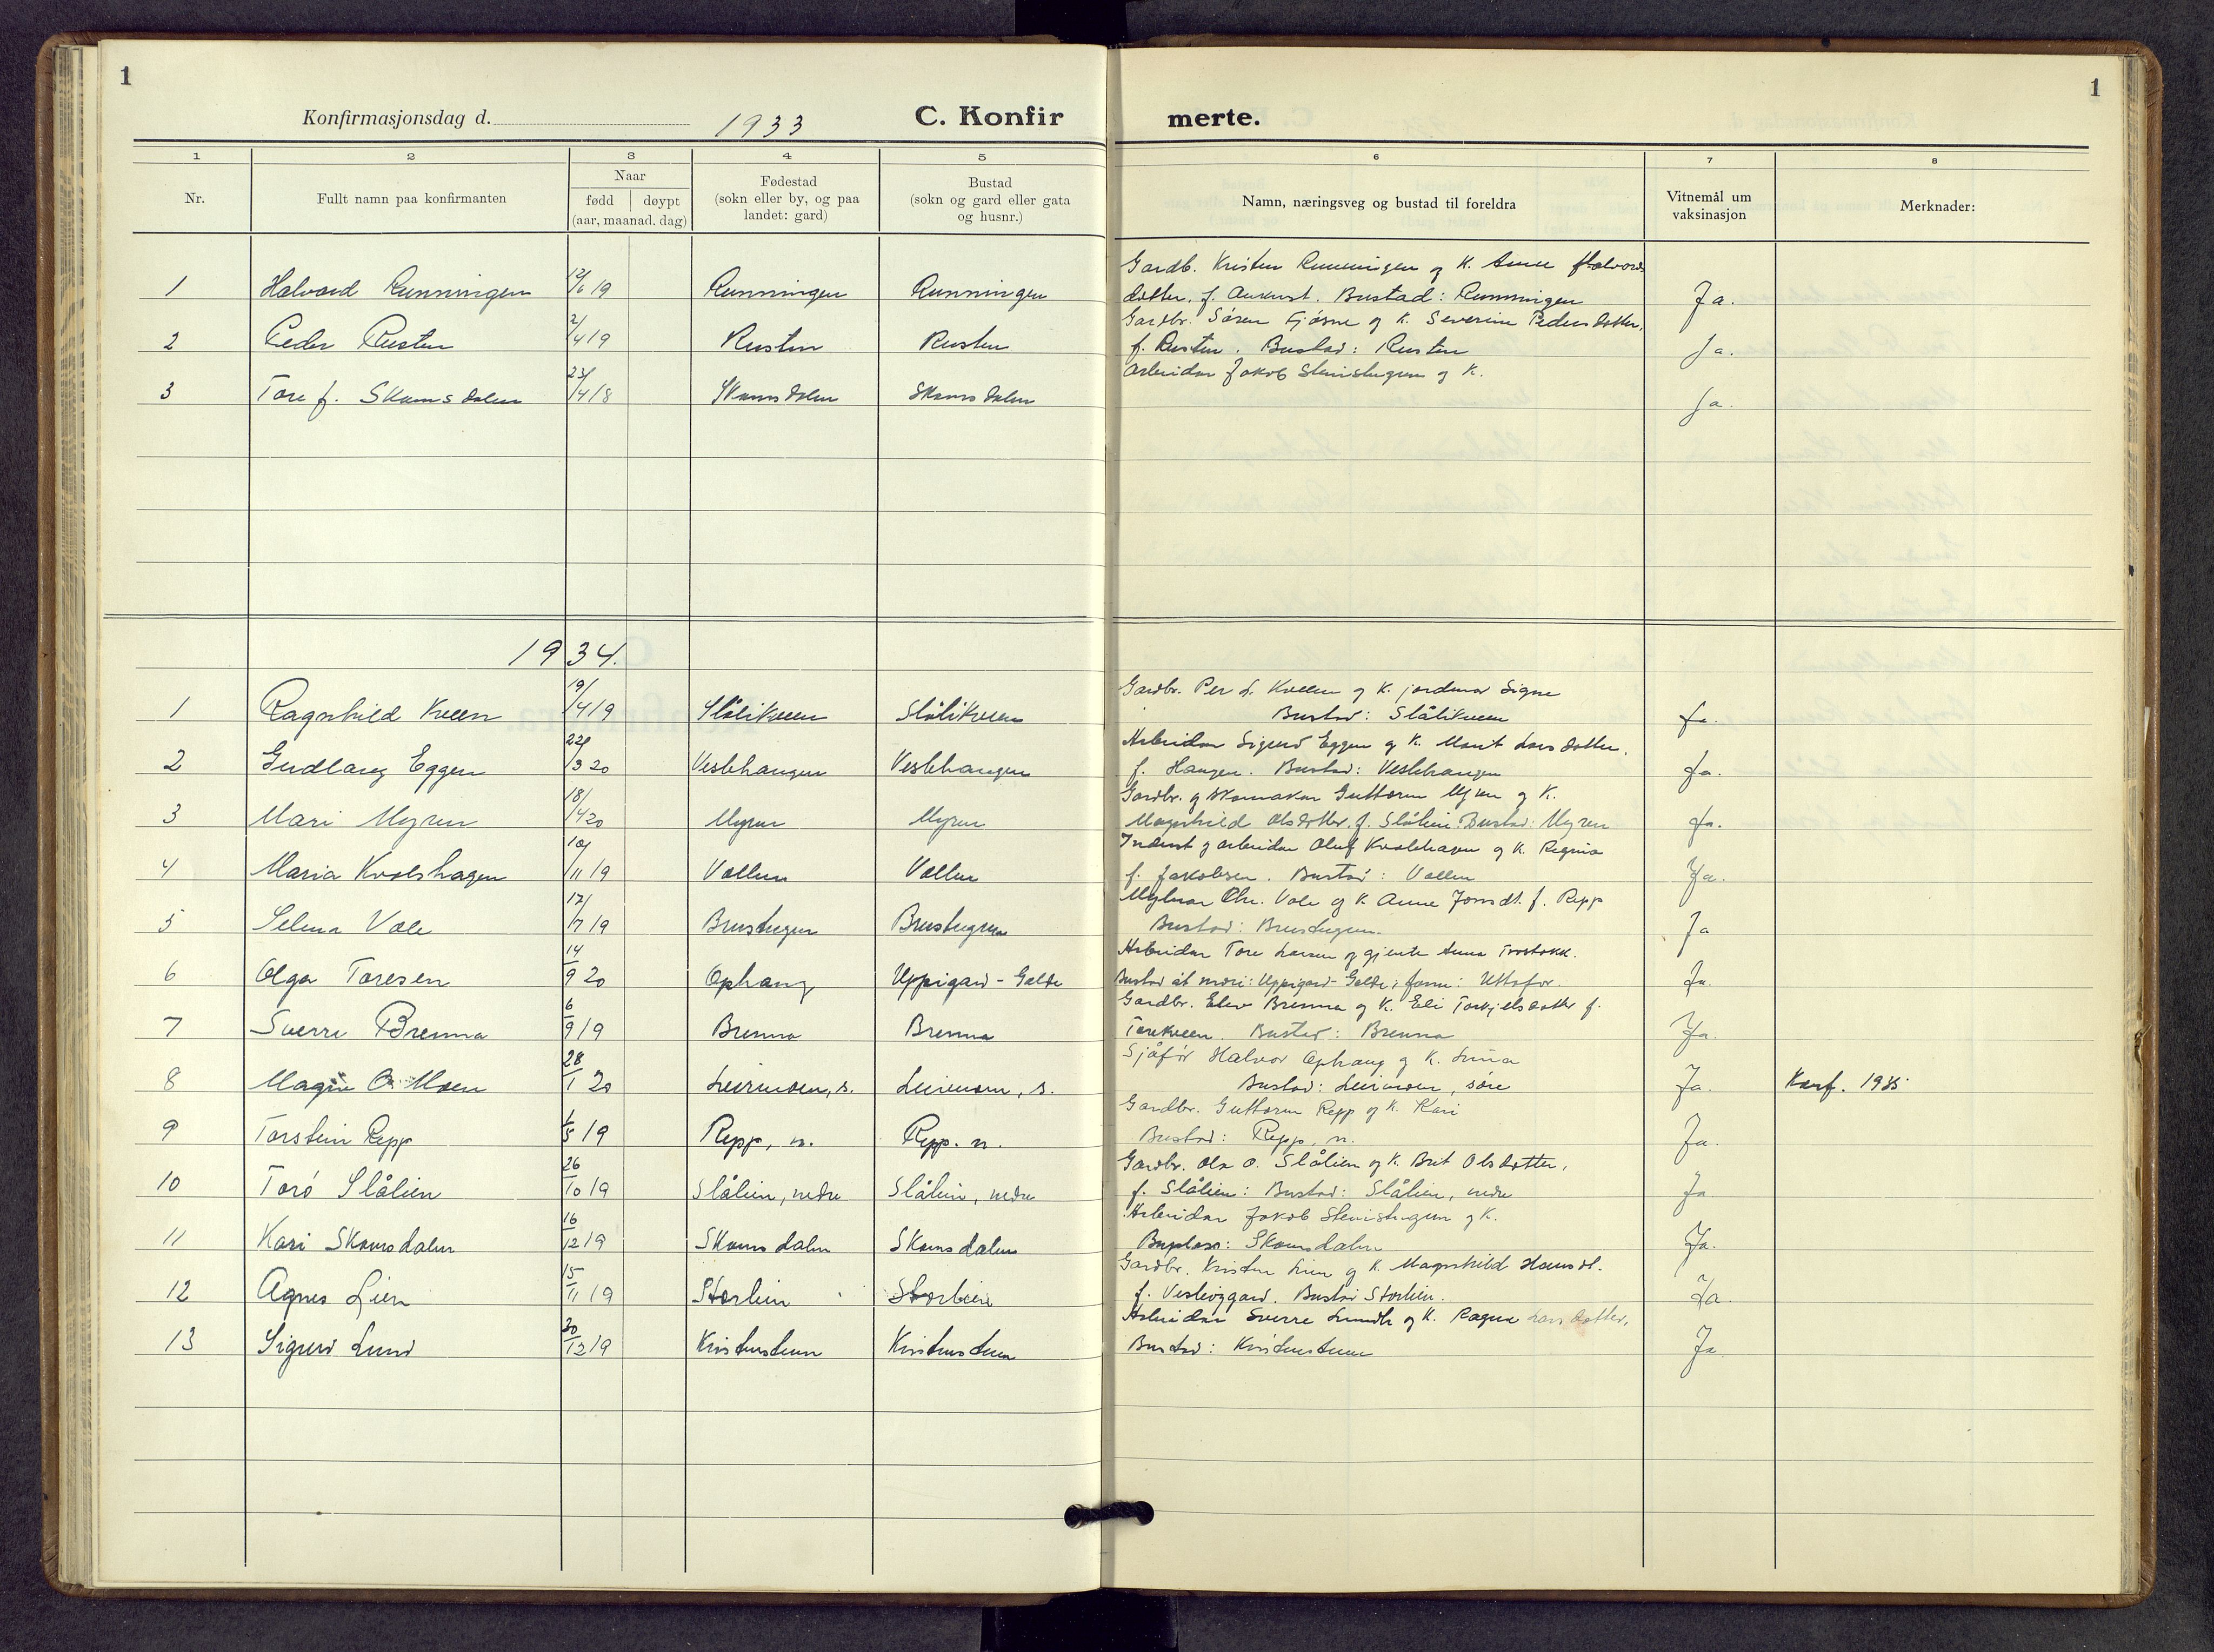 1
Konfirmasjonsdag d. 1933
C. Konfirmerte.
1
1 2 3 4 5 6 7 8
Nr.
Fullt namn paa konfirmanten
Naar
fødd døypt
(aar, maanad. dag)
Fødestad
(sokn eller by, og paa
landet: gard)
Bustad
(sokn og gard eller gata
og husnr.)
Namn, næringsveg og bustad til foreldra
Vitnemål um
vaksinasjon
Merknader:
Gardb. Kristen Runningen og K. Anne Halvords
1 Halvard Runningen 12/6 19 Runningen Runningen dotter, f. Aukrust. Bustad: Runningen Ja.
Gardbr. Sören Gjösne og K. Severine Peders dotter,
2 Peder Rusten 2/4 19 Rusten Rusten f. Rusten. Bustad: Rusten Ja.
Arbeidar Jakob Stenistugun og K.
3 Tore f. Skamsdalen 23/4 18 Skamsdalen Skamsdalen Ja.
1934.
Gardbr. Per L. Kveen og K. jordmor Signe
1 Ragnhild Kveen 19/4 19 Slålikveen Slålikveen Bustad: Slålikveen Ja.
Arbeidar Sigurd Eggen og K. Marit Lars dotter,
2 Gudlaug Eggen 22/3 20 Veslehaugen Veslehaugen f. Haugen. Bustad: Veslehaugen Ja.
Gardbr. og skomakar Guttorm Myren og K.
3 Mari Myren 18/4 20 Myren Myren Magnhild Olsdotter. f. Slålien. Bustad: Myren Ja.
Inderst og arbeidar Oluf Kvolshagen og K. Regina
4 Maria Kvolshagen 10/11 19 Vollen Vollen f. Jakobsen. Bustad: Vollen Ja.
Mylnar Chr. Vole og K. Anne Jonsdt. f. Repp
5 Selma Vole 17/7 19 Brustugun Brustugun Bustad: Brustugun. Ja
Arbeidar Tore Larsen og gjente Anna Trostokk.
6 Olga Toresen 14/9 20 Ophaug Uppigard - Galde Bustad åt mori: Uppigard - Galde; faren: Uttafor. Ja.
Gardbr. Elev Brenna og K. Eli Torkjelsdotter f.
7 Sverre Brenna 6/9 19 Brenna Brenna Torekveen. Bustad: Brenna Ja.
Sjåför Halvor Ophaug og K. Lina
8 Magne O. Moen 28/1 20 Leirmoen, s. Leirmoen, s. Bustad: Leirmoen, söre Ja. Konf. 1935
Gardbr. Guttorm Repp og K. Kari
9 Torstein Repp 1/5 19 Repp, n. Repp. n. Bustad: Repp, n. Ja.
Gardbr. Ola O. Slålien og K. Brit Olsdotter,
10 Torö Slålien 26/10 19 Slålien, nedre Slålien, nedre f. Slålien: Bustad: Slålien, nedre Ja
Arbeidar Jakob Stenistugun og K.
11 Kari Skamsdalen 16/12 19 Skamsdalen Skamsdalen Buplass: Skamsdalen Ja.
Gardbr. Kristen Lien og K. Magnhild Hansdt.
12 Agnes Lien 15/11 19 Storlien Storlien f. Vesliøygard. Bustad Storlien. Ja.
Arbeidar Sverre Lundb og K. Ragna Lars dotter,
13 Sigurd Lund 30/12 19 Kristenstuen Kristenstuen Bustad: Kristenstuen Ja